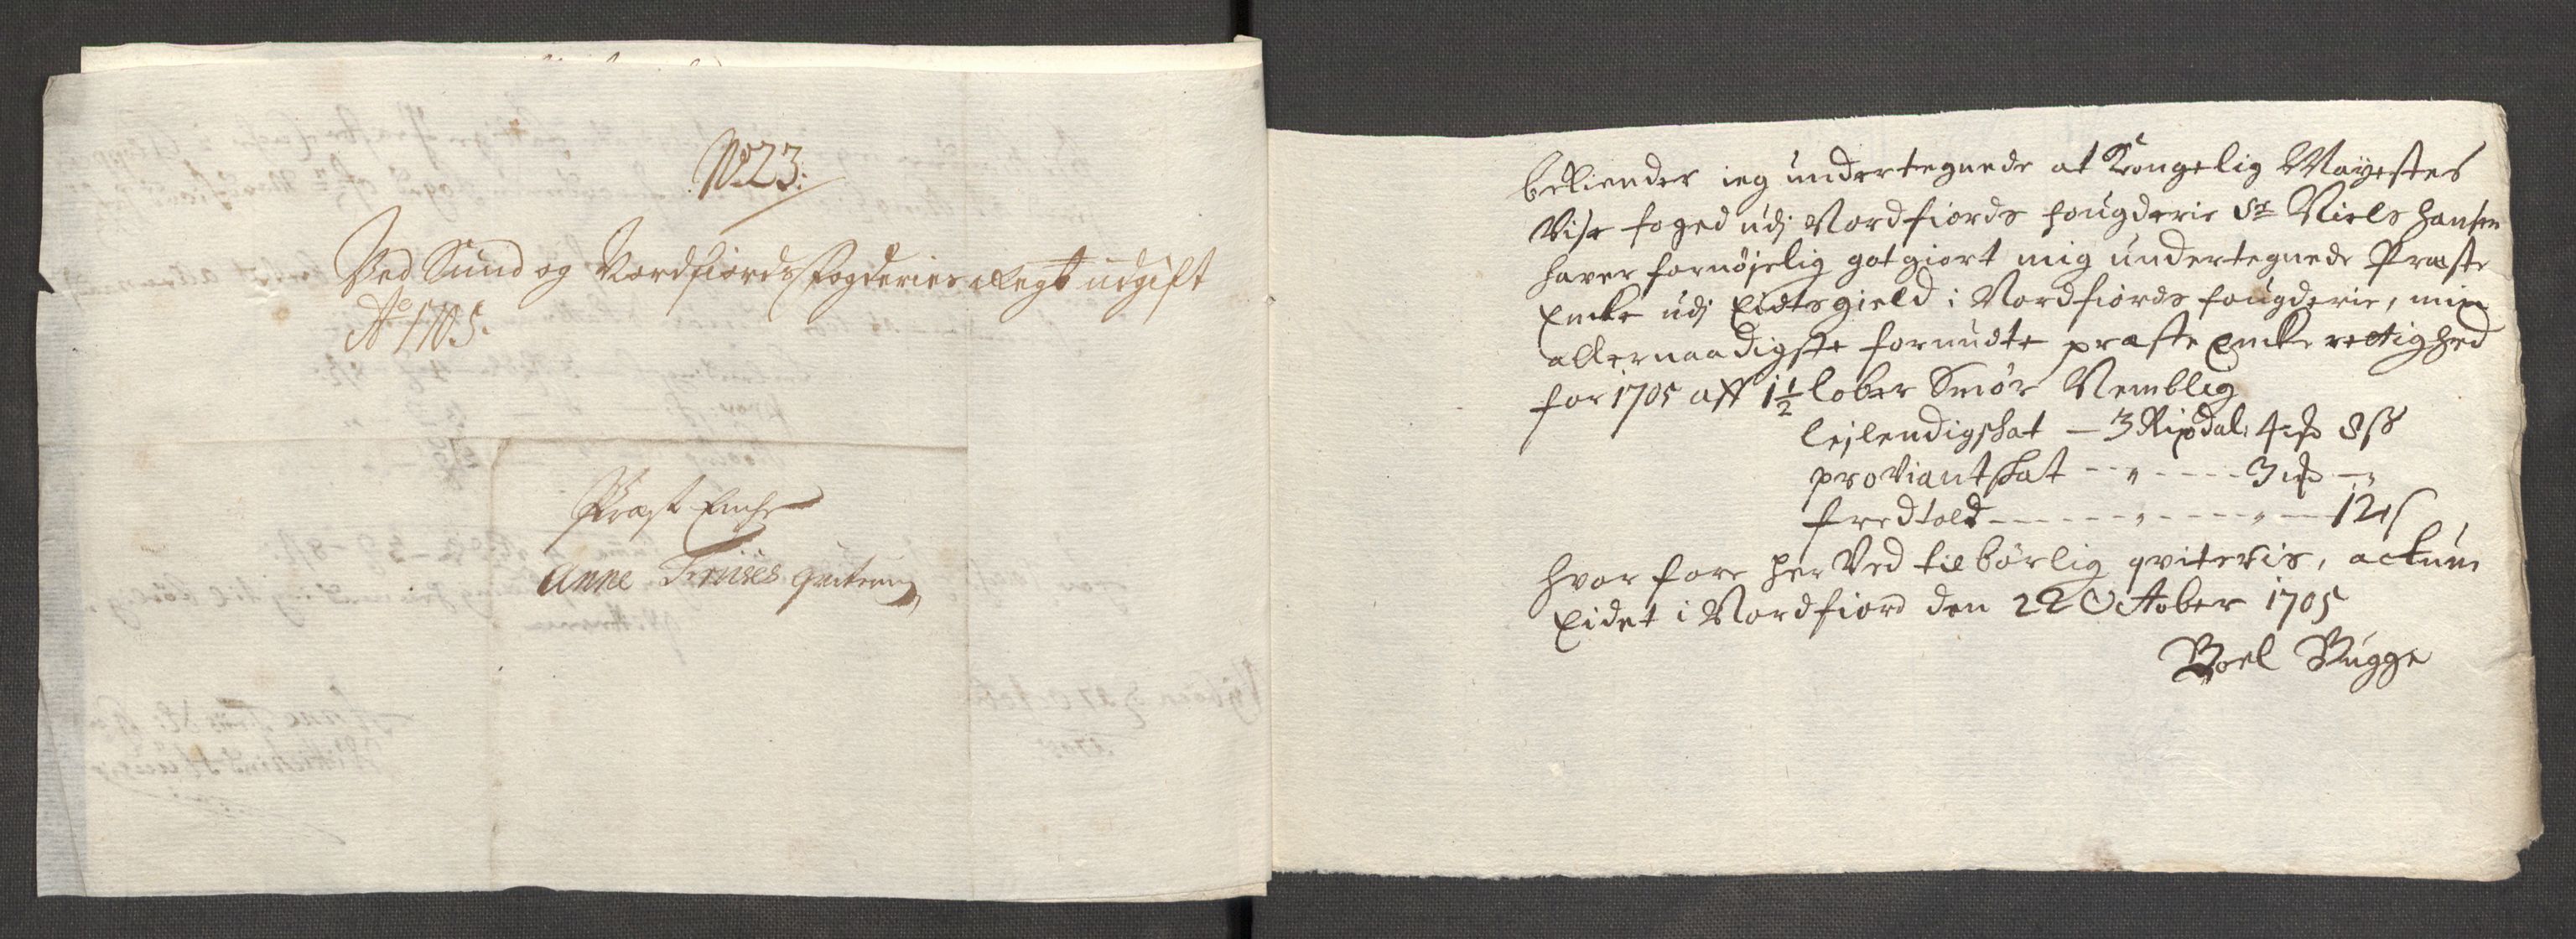 No 23:
Ved Sund og Nordfiords Fogderies Regt udgift
Ao 1705.
Præst Enche
Anne Friises qviterung
bekiender ieg undertegnede at Kongelig Mayestes
Vise foged udj Nordfiords fougderie Sr Niels Hansen
haver fornøjelig got giort mig undertegnede Præste
Encke udj Eidtsgield i Nordfiords fougderie, min
allernaadigste forundte præste Encke rettighed
for 1705 aff 1½ lober Smør Nemblig
lejlendigskat - 3 Rixdal: 4 # 8 ß
proviantskat - - " - - - - 3 # - "
fredtold - - - - - " - - - - " - - 12 ß
hvor fore her Ved til børlig qviteris, actum
Eidet i Nordfiord den 22 October 1705
Boel Bugge